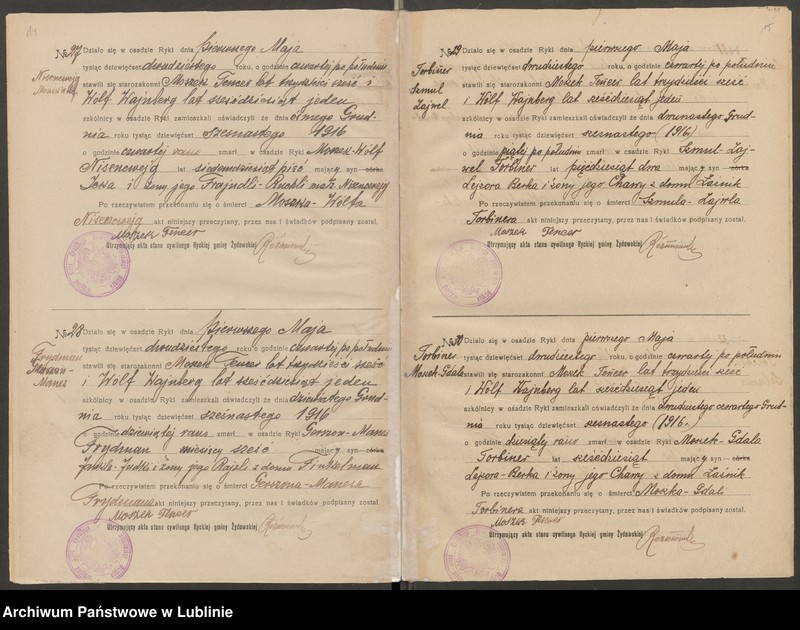 № 27 Działo się w osadzie Ryki dnia pierwszego Maja
tysiąc dziewięćset dwudziestego roku, o godzinie czwartej po południu
Nisencweig
stawili się starozakonni Moszek Fencer lat trzydzieści sześć i
Wolf Wajnberg lat sześćdziesiąt jeden
szkólnicy w osadzie Ryki zamieszkali oświadczyli że dnia ósmego Grud-
nia roku tysiąc dziewięćset szesnastego 1916
o godzinie czwartej rano zmarł w osadzie Ryki Moszek-Wolf
Nisencwejg lat siedemdziesiąt pięć mający syn córka
i żony jego Frajndli-Ruchli małż. Nisencwejg
Po rzeczywistem przekonaniu się o śmierci Moszka-Wolfa
Nisencwejga akt niniejszy przeczytany, przez nas i świadków podpisany został.
Moszek Fencer
Utrzymujący akta stanu cywilnego Ryckiej gminy Żydowskiej
№ 28 Działo się w osadzie Ryki dnia pierwszego Maja
Frydman
Manes
tysiąc dziewięćset dwudziestego roku o godzinie czwartej po południu
stawili się starozakonni Moszek Fencer lat trzydzieści sześć
i Wolf Wajnberg lat sześćdziesiąt jeden
szkólnicy w osadzie Ryki zamieszkali oświadczyli że dnia dziewiątego Grud-
nia roku tysiąc dziewięćset szesnastego 1916
o godzinie dziewiątej rano zmarł w osadzie Ryki Gerszon-Manes
Frydman miesięcy sześć mający syn córka
Jankla-Judki i żony jego Rajzli z domu Finkelman
Po rzeczywistem przekonaniu się o śmierci Gerszona-Manesa
Frydmana akt niniejszy przeczytany, przez nas i świadków podpisany został.
Moszek Fencer
Utrzymujący akta stanu cywilnego Ryckiej gminy Żydowskiej
№ 29 Działo się w osadzie Ryki dnia pierwszego Maja
Torbiner
Szmul
Zajwel
tysiąc dziewięćset dwudziestego roku, o godzinie czwartej po południu
stawili się starozakonni Moszek Fencer lat trzydzieści sześć
i Wolf Wajnberg lat sześćdziesiąt jeden
szkólnicy w osadzie Ryki zamieszkali oświadczyli że dnia dwunastego Grud-
nia roku tysiąc dziewięćset szesnastego (1916)
o godzinie piątej po południu zmarł w osadzie Ryki Szmul Zaj-
wel Torbiner lat pięćdziesiąt dwa mający syn córka
Lejzora Berka i żony jego Chawy z domu Łaśnik
Po rzeczywistem przekonaniu się o śmierci Szmula-Zajwla
Torbinera akt niniejszy przeczytany, przez nas i świadków podpisany został.
Moszek Fencer
Utrzymujący akta stanu cywilnego Ryckiej gminy Żydowskiej
№ 30 Działo się w osadzie Ryki dnia pierwszego Maja
Torbiner
Moszek-Gdala
tysiąc dziewięćset dwudziestego roku, o godzinie czwartej po południu
stawili się starozakonni Moszek Fencer lat trzydzieści sześć
i Wolf Wajnberg lat sześćdziesiąt jeden
szkólnicy w osadzie Ryki zamieszkali oświadczyli że dnia dwudziestego czwartego Grud-
nia roku tysiąc dziewięćset szesnastego (1916.)
o godzinie dziewiątej rano zmarł w osadzie Ryki Moszek-Gdala
Torbiner lat sześćdziesiąt mający syn córka
Lejzora-Berka i żony jego Chawy z domu Łaśnik
Po rzeczywistem przekonaniu się o śmierci Moszka-Gdali
Torbinera akt niniejszy przeczytany, przez nas i świadków podpisany został.
Moszek Fencer
Utrzymujący akta stanu cywilnego Ryckiej gminy Żydowskiej
Archiwum Państwowe w Lublinie